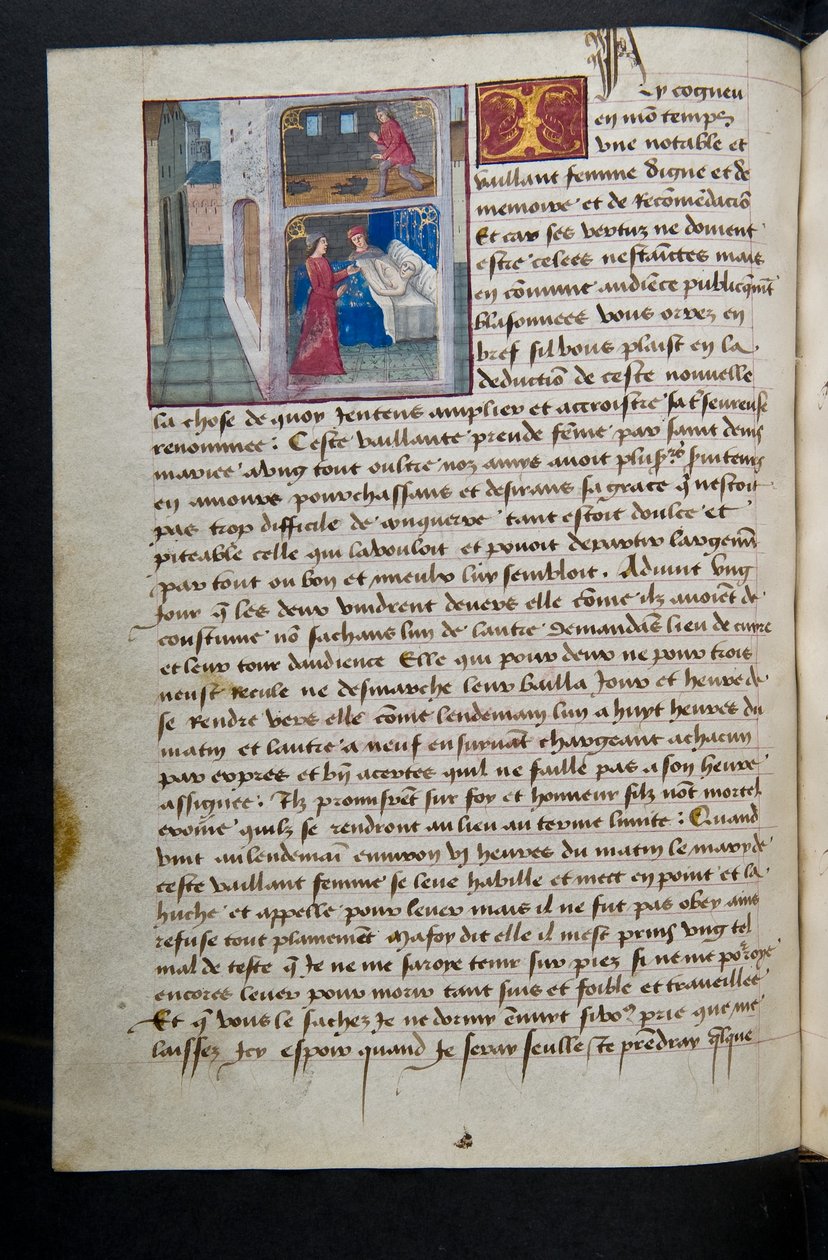 J
Ay cogneu
en mō temps
vne notable et
vaillant femme digne et de
memoire et de Recōmēdaciō
Et car ses vertuz ne doiuent
estre celees nestainctes mais
en cōmune audiēce publicquemēt
blasonnees vous orrez en
bref sil vous plaist en la
deductiō de ceste nouuelle
la chose de quoy Jentens amplier et accroistre sa tsseureuse
renommee : Ceste vaillante preude fēme par saint denis
mariee a vng tout oultre noz amys auoit plusrs seruiteurs
en amours pourchassans et desirans sa grace q̄ nestoit
pas trop difficile de conquerre tant estoit doulce et
piteable celle qui la vouloit et pouoit departir largemēt
par tout ou bon et mieulx luy sembloit . Aduint vng
Jour q̄ les deux vindrent deuers elle cōme ilz auoiēt de
coustume nō sachans lun de lautre demandās lieu de cuyre
et leur tour daudience Elle qui pour deux ne pour trois
neust Recule ne desmarche leur bailla Jour et heure de
se Rendre vers elle cōme lendemain lun a huyt heures du
matin et lautre a neuf ensuyuāt chargeant a chacun
par expres et bñ acertes quil ne faille pas a son heure
assignee . Ilz promisrēt sur foy et honneur silz nōt mortel
exoīne quilz se rendront au lieu au terme limite : Quand
vint au lendemaī enuiron vj heures du matin le mary de
ceste vaillant femme se lieue habille et mect en point et la
huche et appelle pour leuer mais il ne fut pas obey ains
refuse tout plainemēt Mafoy dit elle il mest prins vng tel
mal de teste q̄ Je ne me saroye tenir sur piez si ne me porroye
encores leuer pour morir tant suis et foible et traueillee
Et q̄ vous le sachez Je ne dormy ēnuyt si vos prie que me
laissez Jcy espoir quand Je seray seulle Je prēdray q̄lque